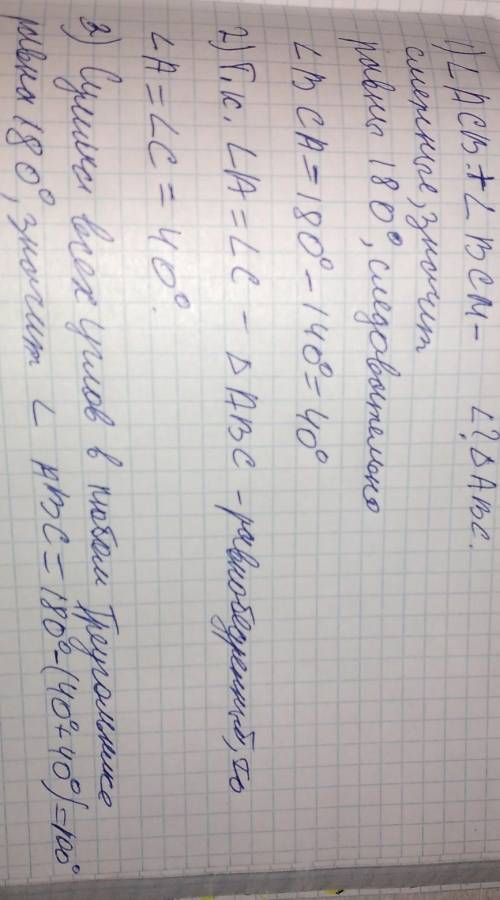 ∠? △ABC.
1) ∠ACB + ∠BCM -
смежные, значит
равны 180°, следовательно
∠BCA = 180° - 140° = 40°
2) Т.к. ∠A = ∠C - △ABC - равнобедренный, то
∠A = ∠C = 40°.
3) Сумма всех углов в любом треугольнике
равна 180°, значит ∠ ABC = 180° - (40° + 40°) = 100°